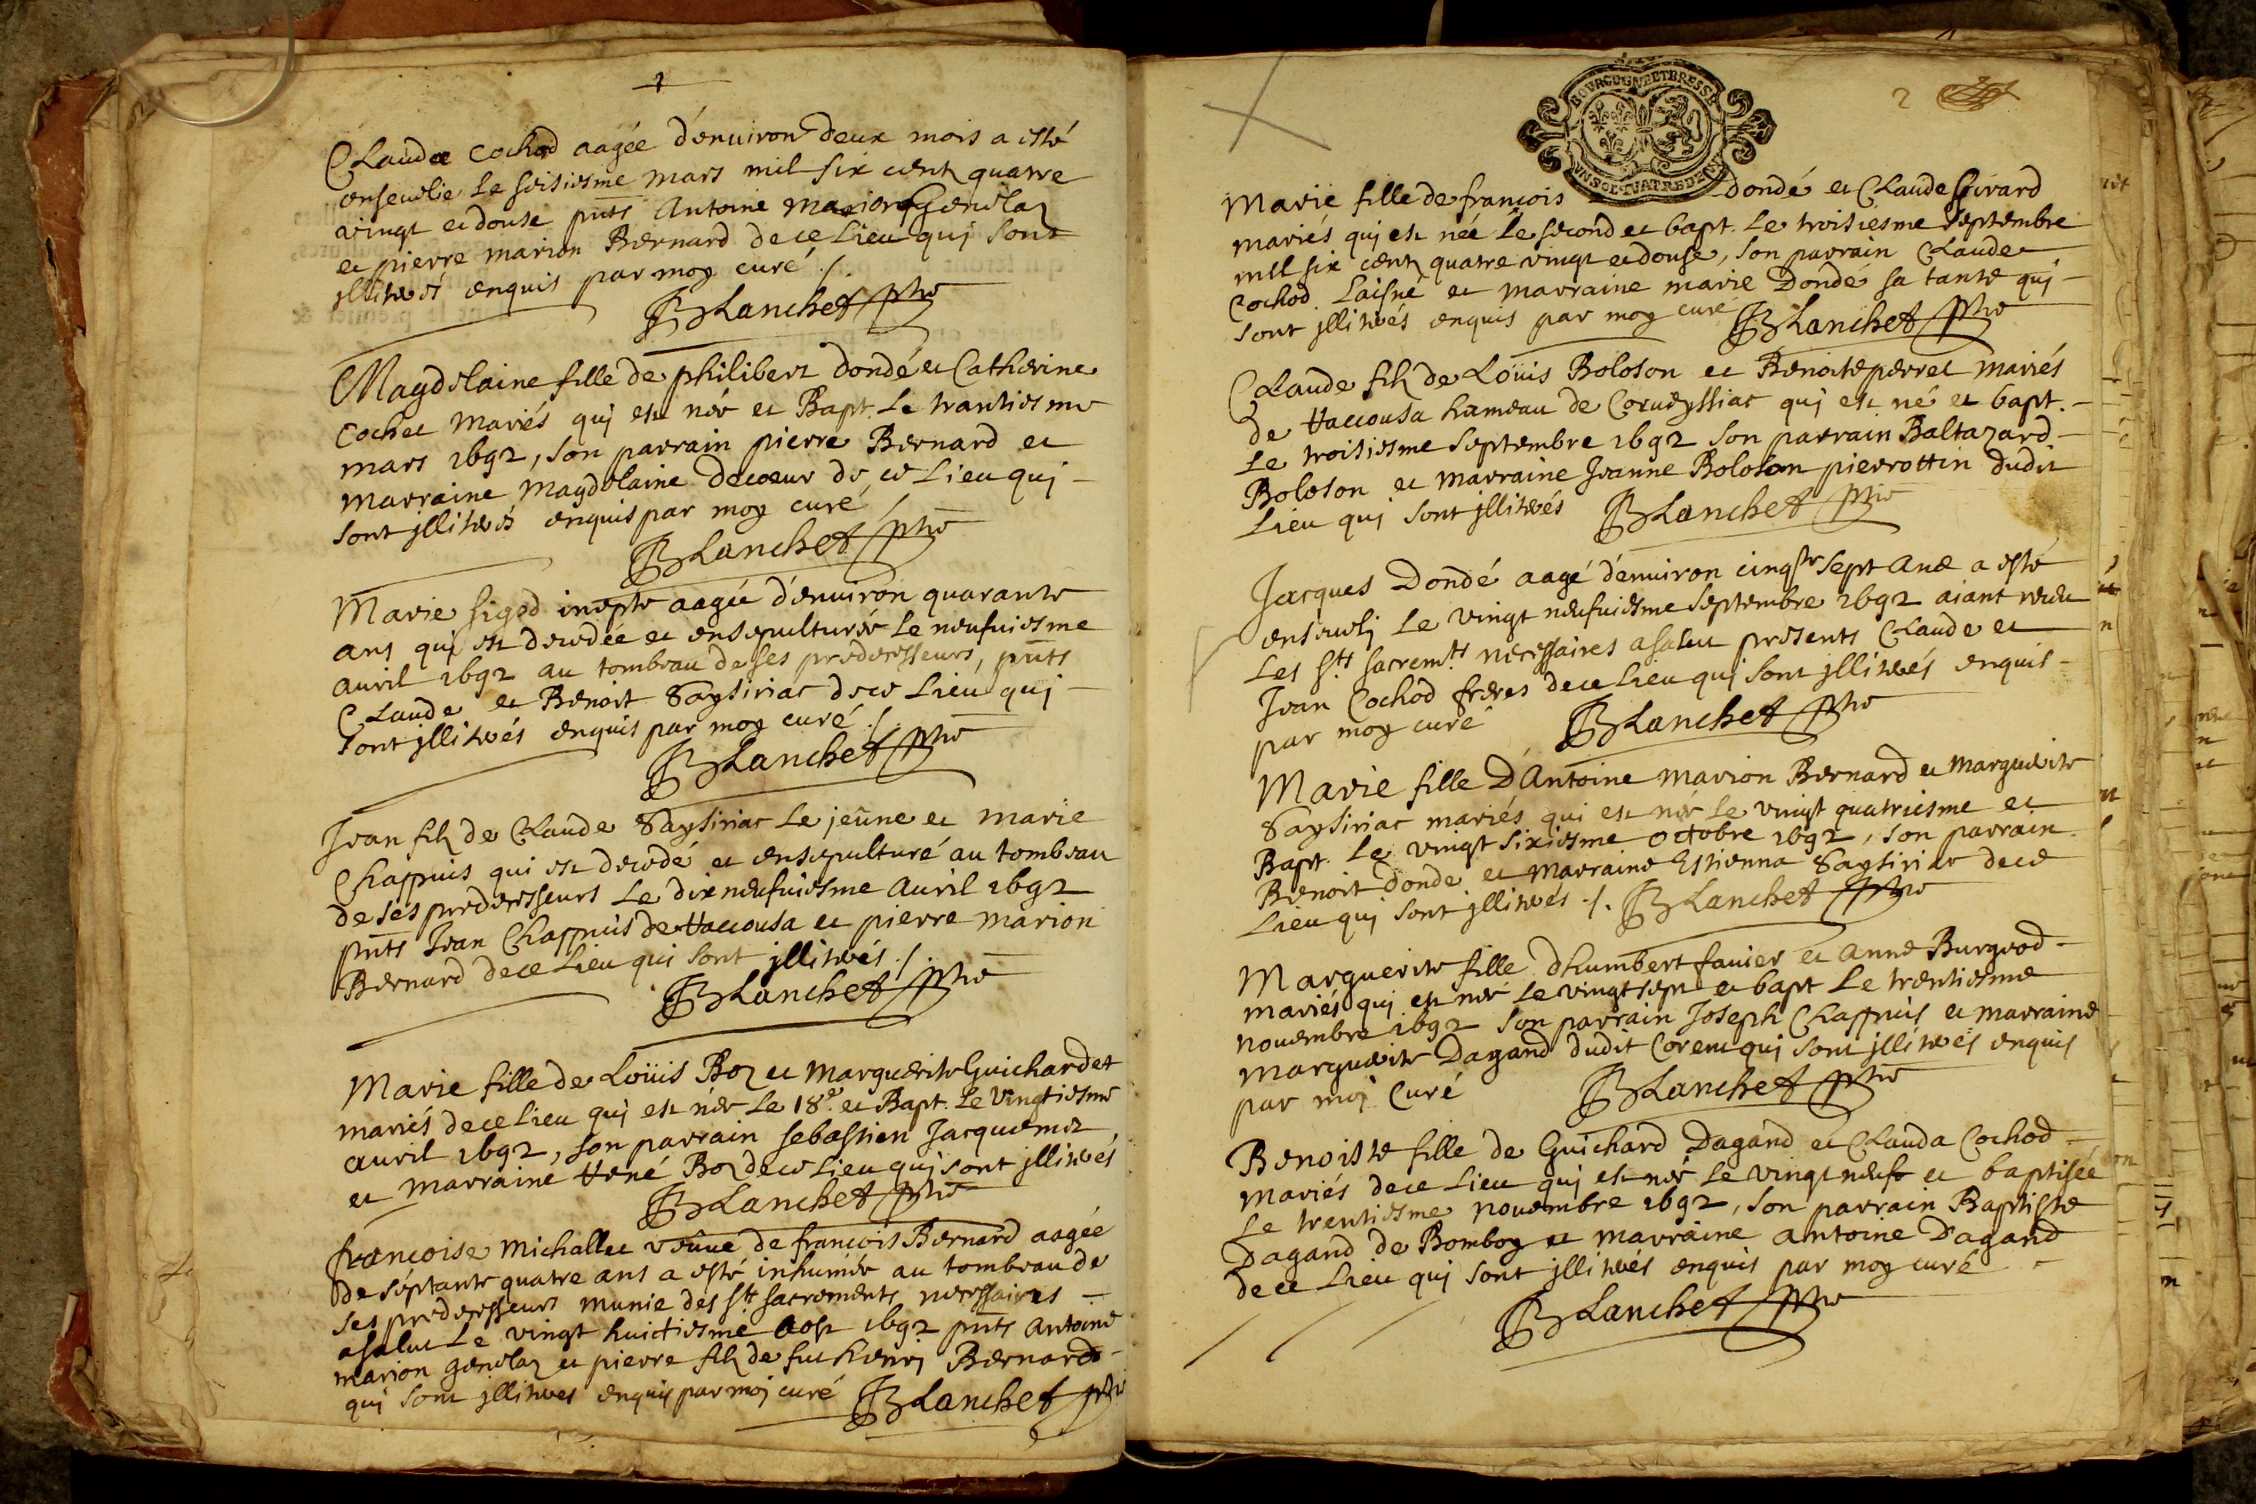 Claudae Cochod aagée d'enuiron deux mois a esté
enseuelie le seisiesme mars mil six cent quatre
vingt et douse pñts Antoine Marion Genolaz
et pierre marion Bernard de ce Lieu qui sont
jllitrés enquis par moy curé ./.
Blanchet ptre
Magdelaine fille de philibert dondé et Catherine
Cochet Mariés qui est née et Bapt. Le trantiesme
mars 1692, son parrain pierre Bernard et
marraine Magdelaine Decoeur de ce Lieu qui
sont jllitrés enquis par moy curé /
Blanchet ptre
Marie sigod inepte aagée d'enuiron quarante
ans qui est decedée et ensepulturée Le neufuiesme
auril 1692 au tombeau de ses predecesseurs, pñts
Claude et Benoit Saysiriac de ce Lieu qui
sont jllitrés enquis par moy curé ./.
Blanchet ptre
Jean filz de Claude Saysiriac Le jeûne et marie
Chappuis qui est decedé et ensepulturé au tombeau
de ses predecesseurs Le dix neufuiesme Auril 1692
pñts Jean Chappuis de Haccousa et pierre marion
Bernard de ce Lieu qui sont jllitrés ./.
Blanchet ptre
Marie fille de Loüis Boz et marguerite Guichardet
mariés de ce Lieu qui est née Le 18e. et Bapt. Le vingtiesme
auril 1692, son parrain sebastien Jacquemet
et marraine Hené Boz de ce Lieu qui sont jllitrés
Blanchet ptre
françoise Michallet veûue de francois Bernard aagée
de septante quatre ans a esté inhumée au tombeau de
ses predecesseurs munie des sts sacrements necessaires
a salut Le vingt huictiesme Aost 1692 pñts Antoine
marion genolaz et pierre filz de fut henrj Bernard
qui sont jllitres enquis par moj curé Blanchet ptre
2
BOVRGOGNE ET BRESSE
Marie fille de francois dondé et Claude Girard
mariés qui est née Le second et bapt. Le troisiesme septembre
mil six cent quatre vingt et douse, son parrain Claude
Cochod Laisné et marraine marie Dondé sa tante qui
sont jllitrés enquis par moy curé Blanchet ptre
Claude filz de Loüis Boloson et Benoite perret mariés
de Haccousa hameau de Corueyssiac qui est né et bapt.
Le troisiesme septembre 1692 son parrain Baltazard
Boloson et marraine Jeanne Boloson pierrottin dudit
Lieu qui sont jllitrés Blanchet ptre
Jacques Dondé aagé d'enuiron cinqte sept ans a esté
enseueli Le vingt neufuiesme septembre 1692 aiant receu
Les sts sacremts necessaires a salut presents Claude et
Jean Cochod freres de ce Lieu qui sont jllitrés enquis
par moy curé Blanchet ptre
Marie fille D'Antoine marion Bernard et marguerite
Saysiriac mariés qui est née Le vingt quatriesme et
Bapt. Le vingt sixiesme octobre 1692, son parrain
Benoit dondé et marraine Estienna Saysiriac de ce
Lieu qui sont jllitrés ./. Blanchet ptre
Marguerite fille d'humbert fauier et Anne Burgeod
mariés qui est née Le vingt sept et bapt Le trentiesme
nouembre 1692 son parrain Joseph Chappuis et marraine
marguerite Dagand dudit Corent qui sont jllitrés enquis
par moj Curé Blanchet ptre
Benoiste fille de Guichard Dagand et Clauda Cochod
mariés de ce Lieu qui est née Le vingt neuft et baptisée
Le trentiesme nouembre 1692, son parrain Baptiste
Dagand de Bomboy et marraine antoine Dagand
de ce Lieu qui sont jllitrés enquis par moy curé
Blanchet ptre